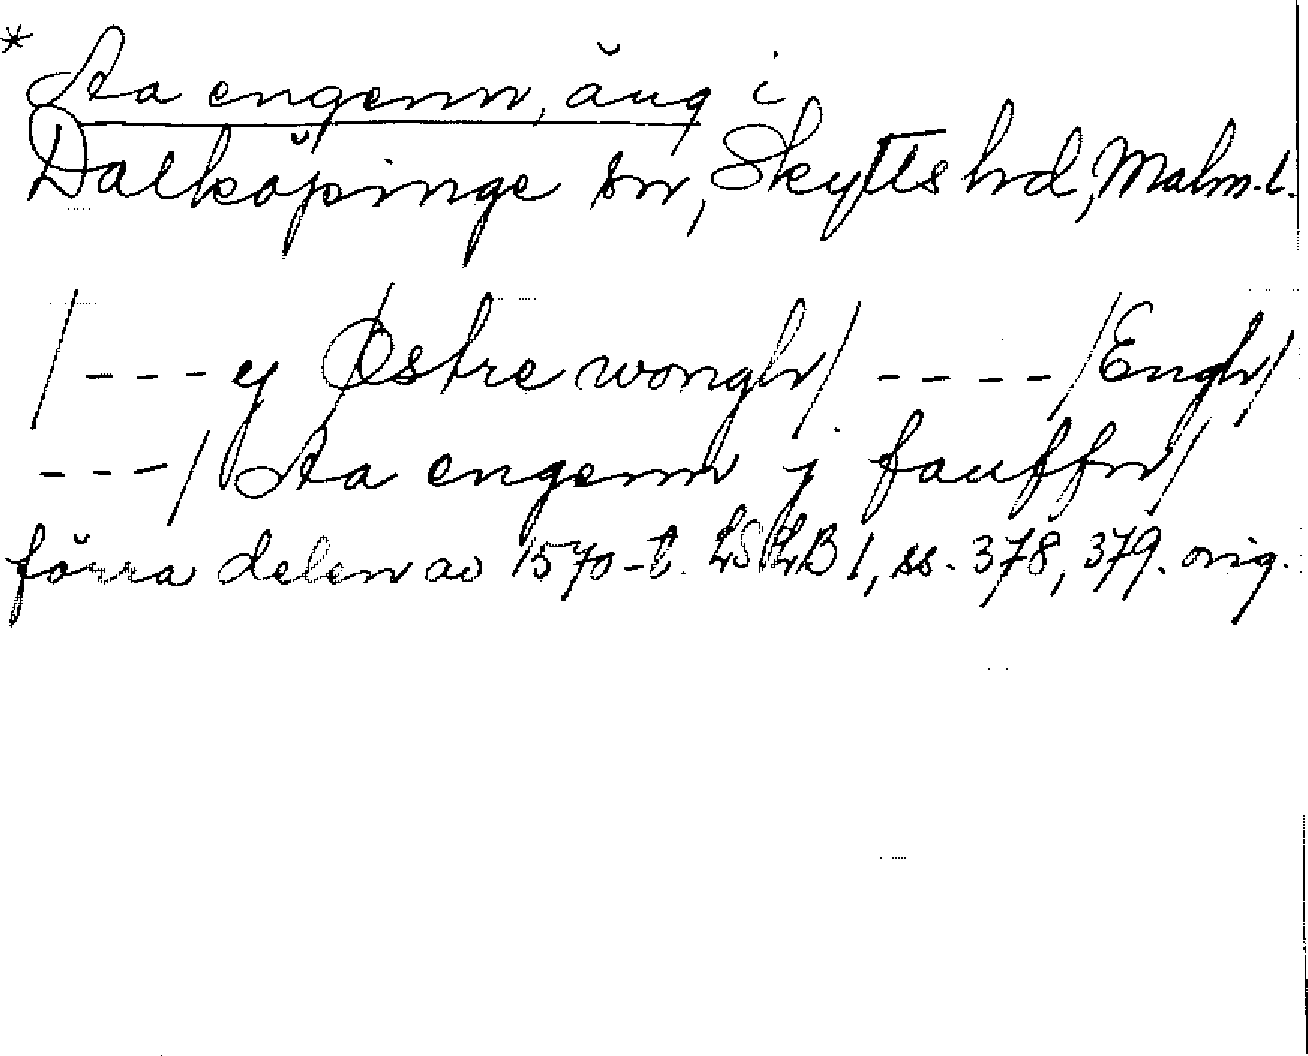 * Aa engenn, äng i
Dalköpinge sn, Skytts hd, Malm. l.
/---ej Østre wongh/ ----/Engh/
---/ Aa engenn j fauffn/
förra delen av 1570-t. LSLB 1, ss. 378, 379. orig.